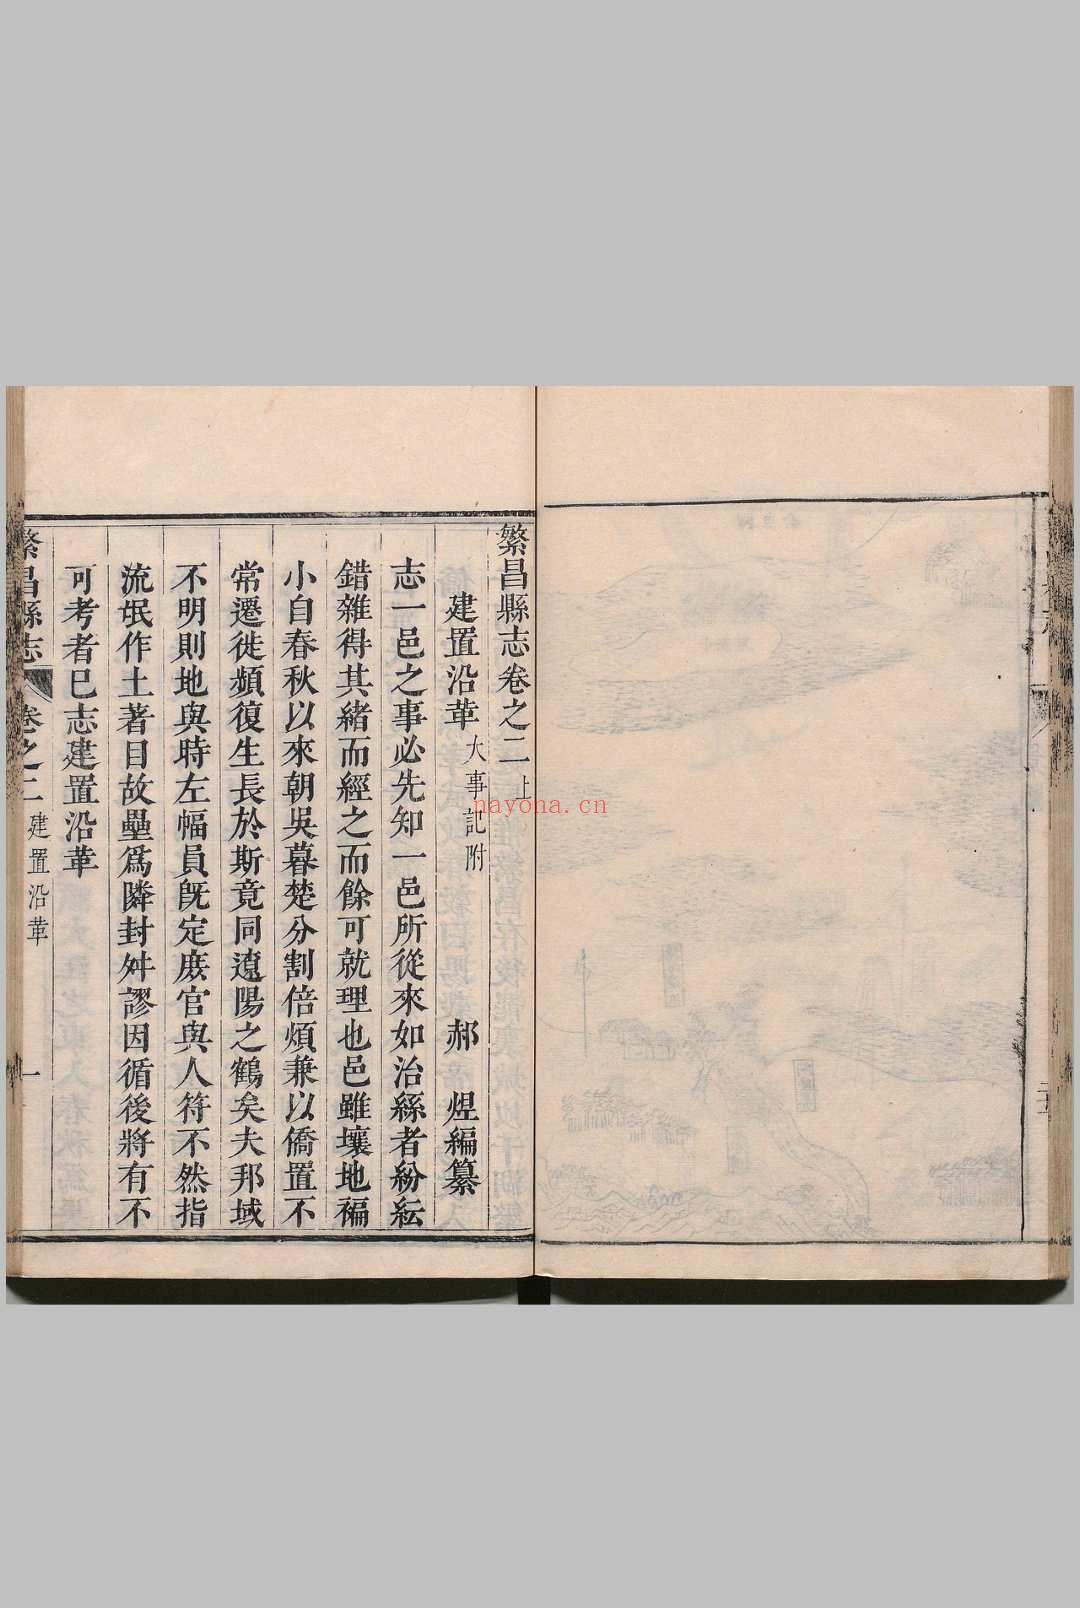 繁昌縣志卷之二上
建置沿革 大事記附 郝 煜編纂
志一邑之事必先知一邑所從來如治絲者紛紜
錯雜得其緒而經之而餘可就理也邑雖壤地褊
小自春秋以來朝吳暮楚分割倍煩兼以僑置不
常遷徙頻復生長於斯竟同遼陽之鶴矣夫邦域
不明則地與時左幅員既定庶官與人符不然指
流氓作土著目故壘為隣封舛謬因循後將有不
可考者巳志建置沿革
繁昌縣志 卷之二 建置沿革 一
nayona.cn